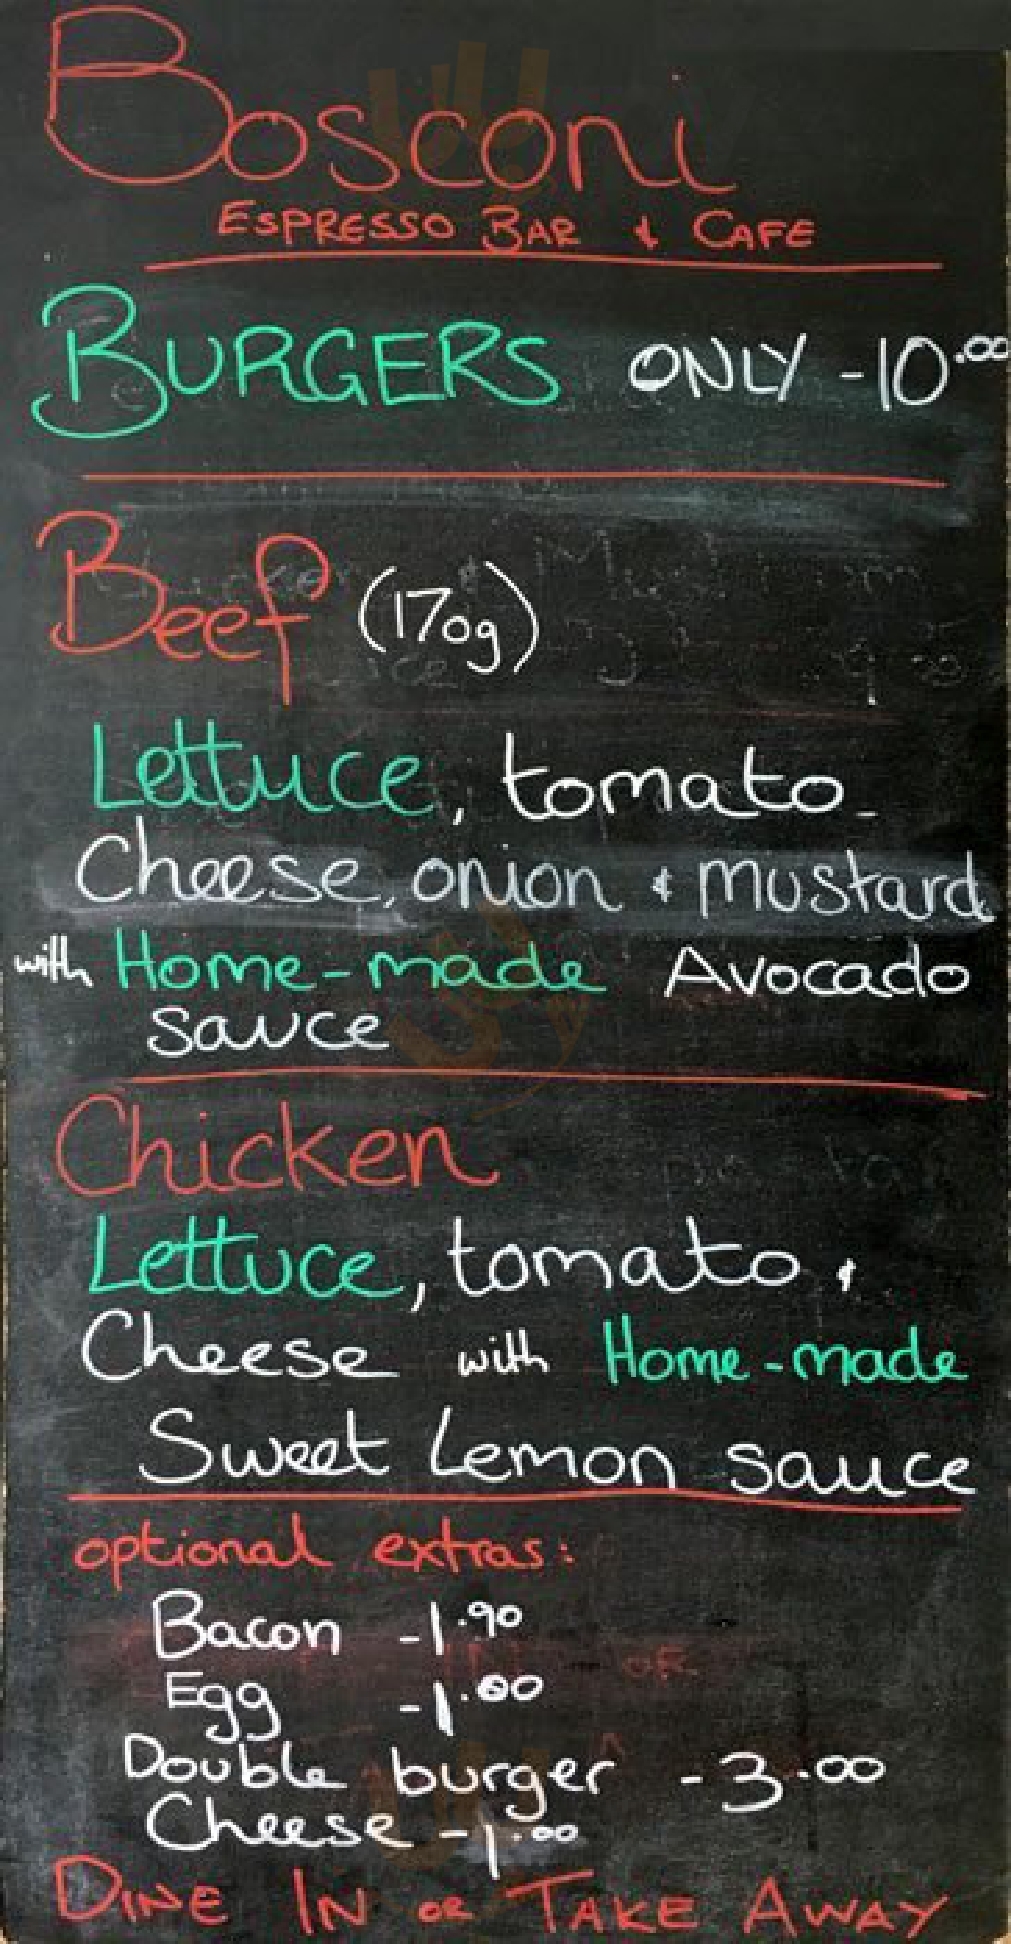 Bosconi
ESPRESSO BAR & CAFE
BURGERS ONLY -10.00
Beef (170g)
Lettuce, tomato
Cheese, onion & mustard
with Home-made Avocado
sauce
Chicken
Lettuce, tomato &
Cheese with Home-made
Sweet Lemon sauce
optional extras:
Bacon -1.90
Egg -1.00
Double burger -3.00
Cheese -1.00
DINE IN OR TAKE AWAY